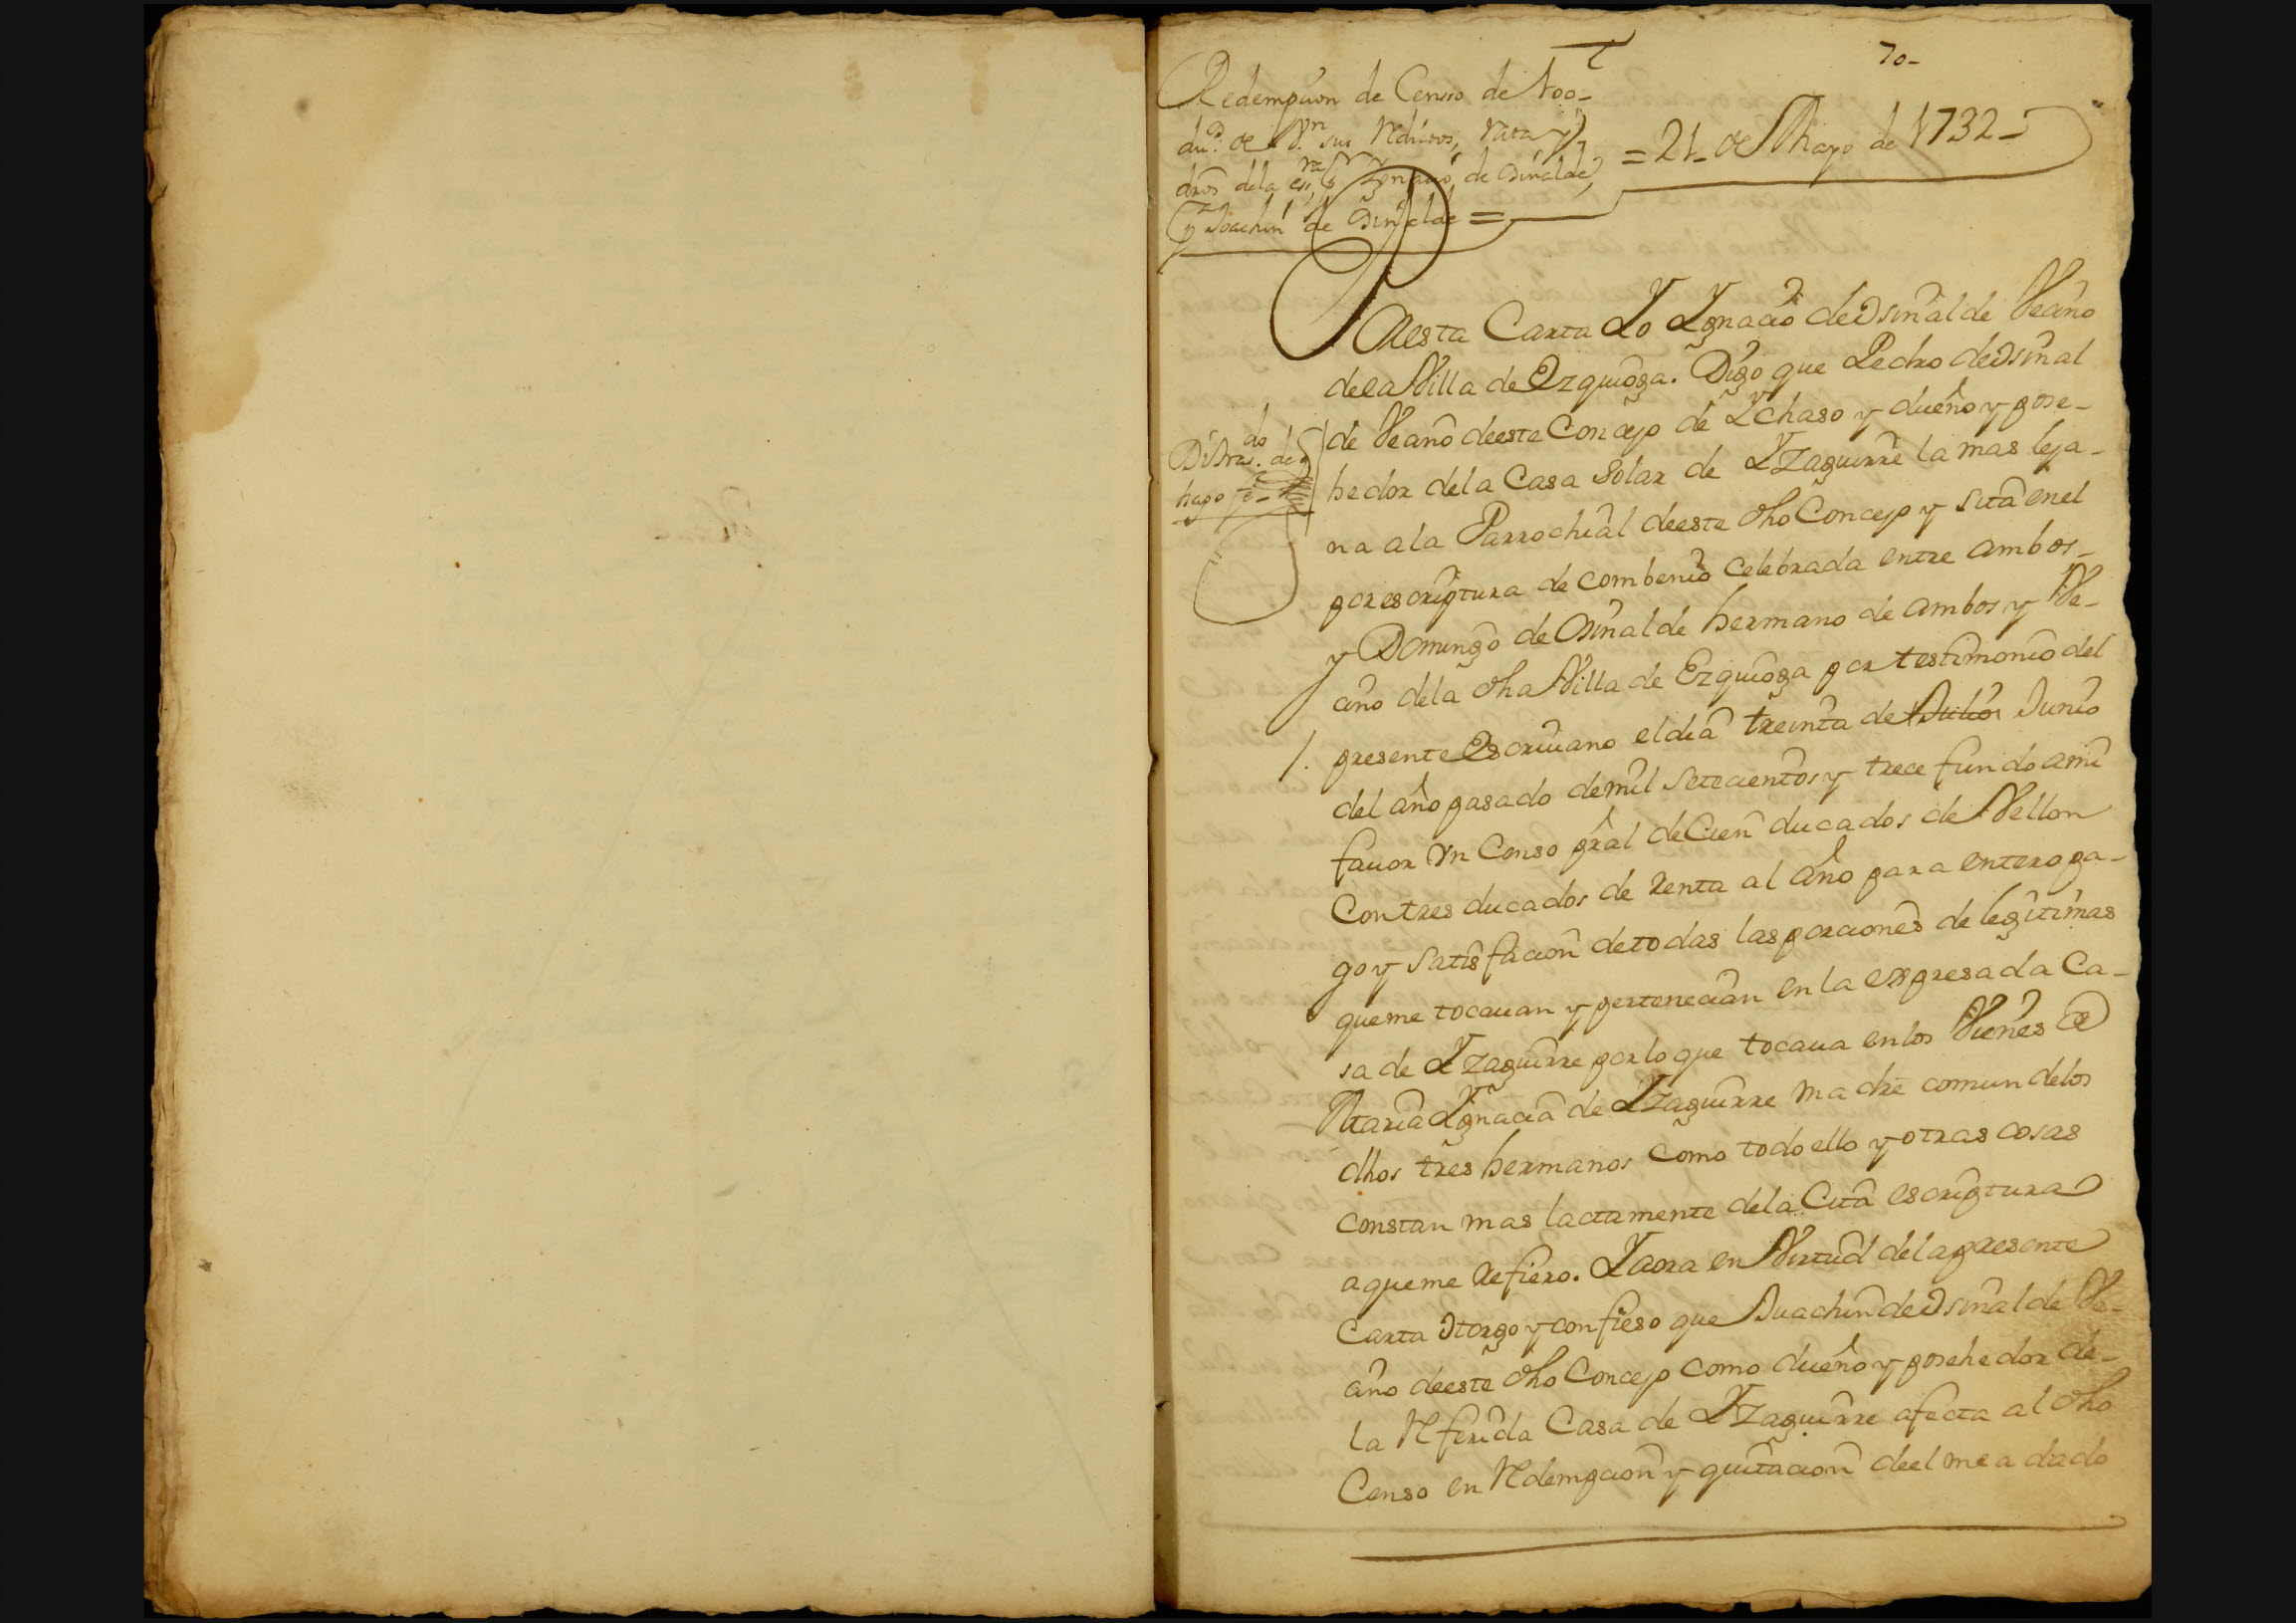 70-
Redempcion de Censo de 100-
du.s de V.n sus Reditos, rata y
dros dela es.ra Ygnacio de Osinalde
y Joachin de Osinalde =
= 21- de Mayo de 1732-
PAresta Carta Yo Ygnacio de Osinalde Veçino
dela Villa de Ezquioga. Digo que Pedro de Osinal
de Veçino deeste Concejo de Ychaso y dueño y pose-
hedor dela Casa Solar de Yzaguirre la mas leja-
na ala Parrochial deeste dho Concejo y sita enel
por escriptura de combenio celebrada entre ambos-
y Domingo de Osinalde hermano de ambos y Ve-
çino dela dha Villa de Ezquioga por testimonio del
/. presente Escriuano eldia treinta de Julio Junio
del año pasado demil setecientos y trece fundo ami
fauor Vn Censo pral de Cien ducados de Vellon
Con tres ducados de renta al año para entero pa-
go y satisfacion detodas las porciones de legitimas
queme tocauan y pertenecian en la expresada Ca-
sa de Yzaguirre porlo que tocaua enlos Vienes de
Maria Ygnacia de Yzaguirre madre comun delos
dhos tres hermanos como todo ello y otras cosas
constan mas lactamente dela Cita escriptura
aqueme refiero. Yaora en Virtud dela presente
Carta Otorgo y confieso que Juachin de Osinalde Ve-
çino deeste dho Concejo como dueño y posehedor de-
la Referida Casa de Yzaguirre afecta al dho
Censo en Redempcion y quitacion deel me a dado
hago fe-